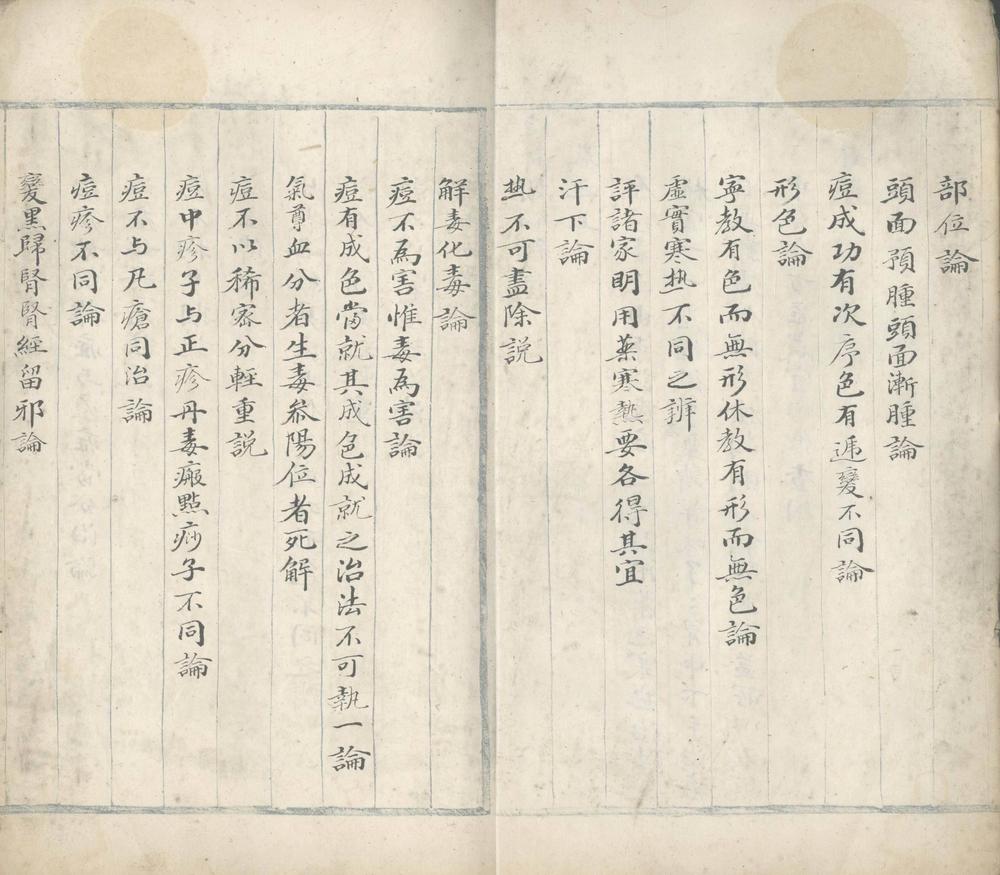 部位論
頭面預腫頭面漸腫論
痘成功有次序色有遞變不同論
形色論
寧教有色而無形休教有形而無色論
虛實寒热不同之辨
評諸家眀用藥寒熱要各得其宜
汗下論
热不可盡除説
解毒化毒論
痘不為害惟毒為害論
痘有成色當就其成色成就之治法不可執一論
氣尊血分者生毒參陽位者死解
痘不以稀密分輕重説
痘中疹子与正疹丹毒癍點痧子不同論
痘不与凡瘡同治論
痘疹不同論
變黒歸腎腎經留邪論